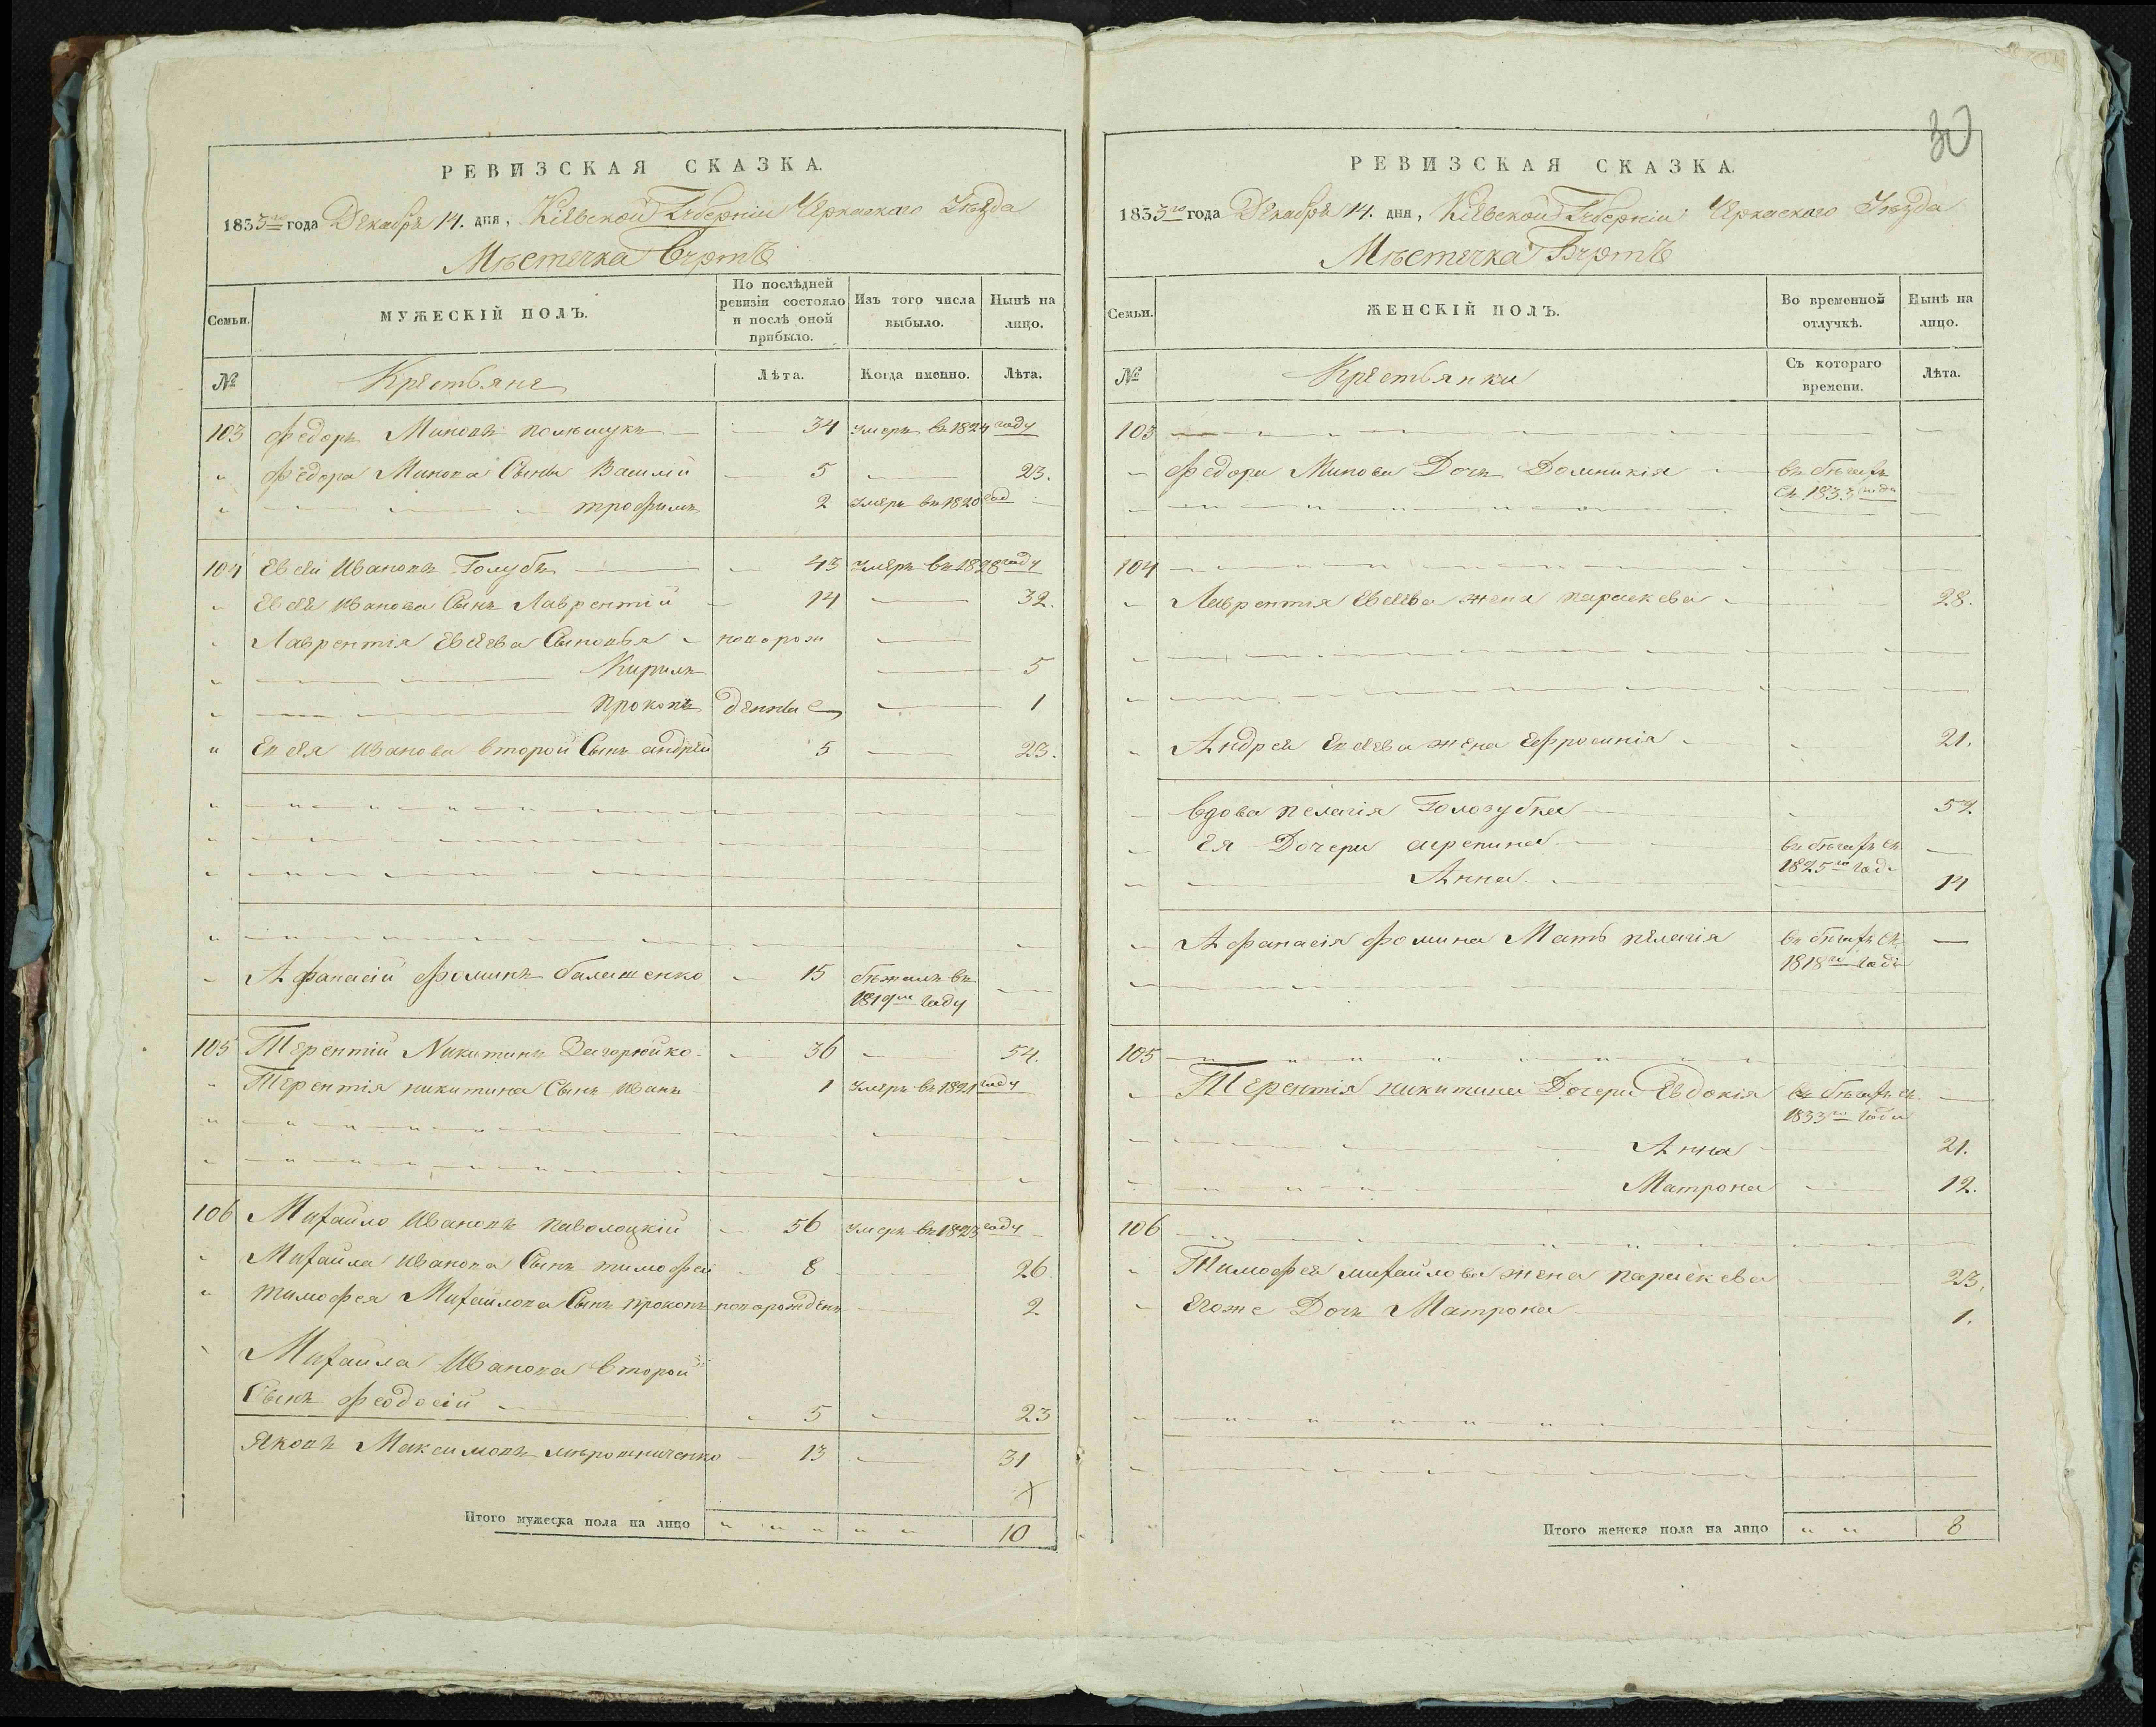 РЕВИЗСКАЯ СКАЗКА.
1833го года Декабря 14. дня, Кіевской Губерніи Черкаскаго Уѣзда
Мѣстечка
Семьи.
МУЖЕСКІЙ ПОЛЪ.
По послѣдней ревизіи состояло и послѣ оной прибыло.
Изъ того числа выбыло.
Нынѣ на лицо.
№
Крестьяне
Лѣта.
Когда именно.
Лѣта.
103 Федоръ Миновъ 34 умеръ въ 1824 году
" Федора Минова Сынъ Василій 5 23.
" Трофимъ 2 умеръ въ 1820 год
104 Евсей Ивановъ Голубъ 43 умеръ въ 1828 году
" Евсея Иванова Сынъ Лаврентій 14 32.
" Лаврентія Евсеева Сыновья новорож
" Кирилъ 5
" Прокопъ денные 1
" Евсея Иванова второй Сынъ андрей 5 23.
" Афанасій Фоминъ 15 бѣжалъ въ
1819м году
105 Терентій Никитинъ 36 54.
" Терентія никитина Сынъ Иванъ 1 умеръ въ 1821 году
106 Михайло Ивановъ паволоцкій 56 умеръ въ 1823 году
" Михайла Иванова Сынъ тимофей 8 26.
" тимофея Михайлова Сынъ прокопъ новорожденъ 2
Михайла Иванова второй
Сынъ феодосій 5 23
Яковъ Максимовъ мѣрошниченко 13 31
Итого мужеска пола на лицо " " " " " 10
30
РЕВИЗСКАЯ СКАЗКА.
1833го года Декабря 14. дня, Кіевской Губерніи Черкаскаго Уѣзда
Мѣстечка
Семьи.
ЖЕНСКІЙ ПОЛЪ.
Во временной отлучкѣ.
Нынѣ на лицо.
№
Крестьянки
Съ котораго времени.
Лѣта.
103
Федора Минова Дочь Домникія въ бѣгахъ
съ 1833 года
104
Лаврентія Евсеева жена параскева 28.
Андрея Евсеева жена Ефросинія 21.
вдова пелагія
Ея Дочери агрепина въ бѣгахъ съ
1825го года
Анна 14
Афанасія Фомина Мать пелагія въ бѣгахъ съ
1818го года
105
Терентія никитина Дочери Евдокія въ бѣгахъ съ
1833го года
Анна 21.
Матрона 12.
106
Тимофея михайлова жена параскева 23.
Егоже Дочь Матрона 1.
Итого женска пола на лицо " " 8